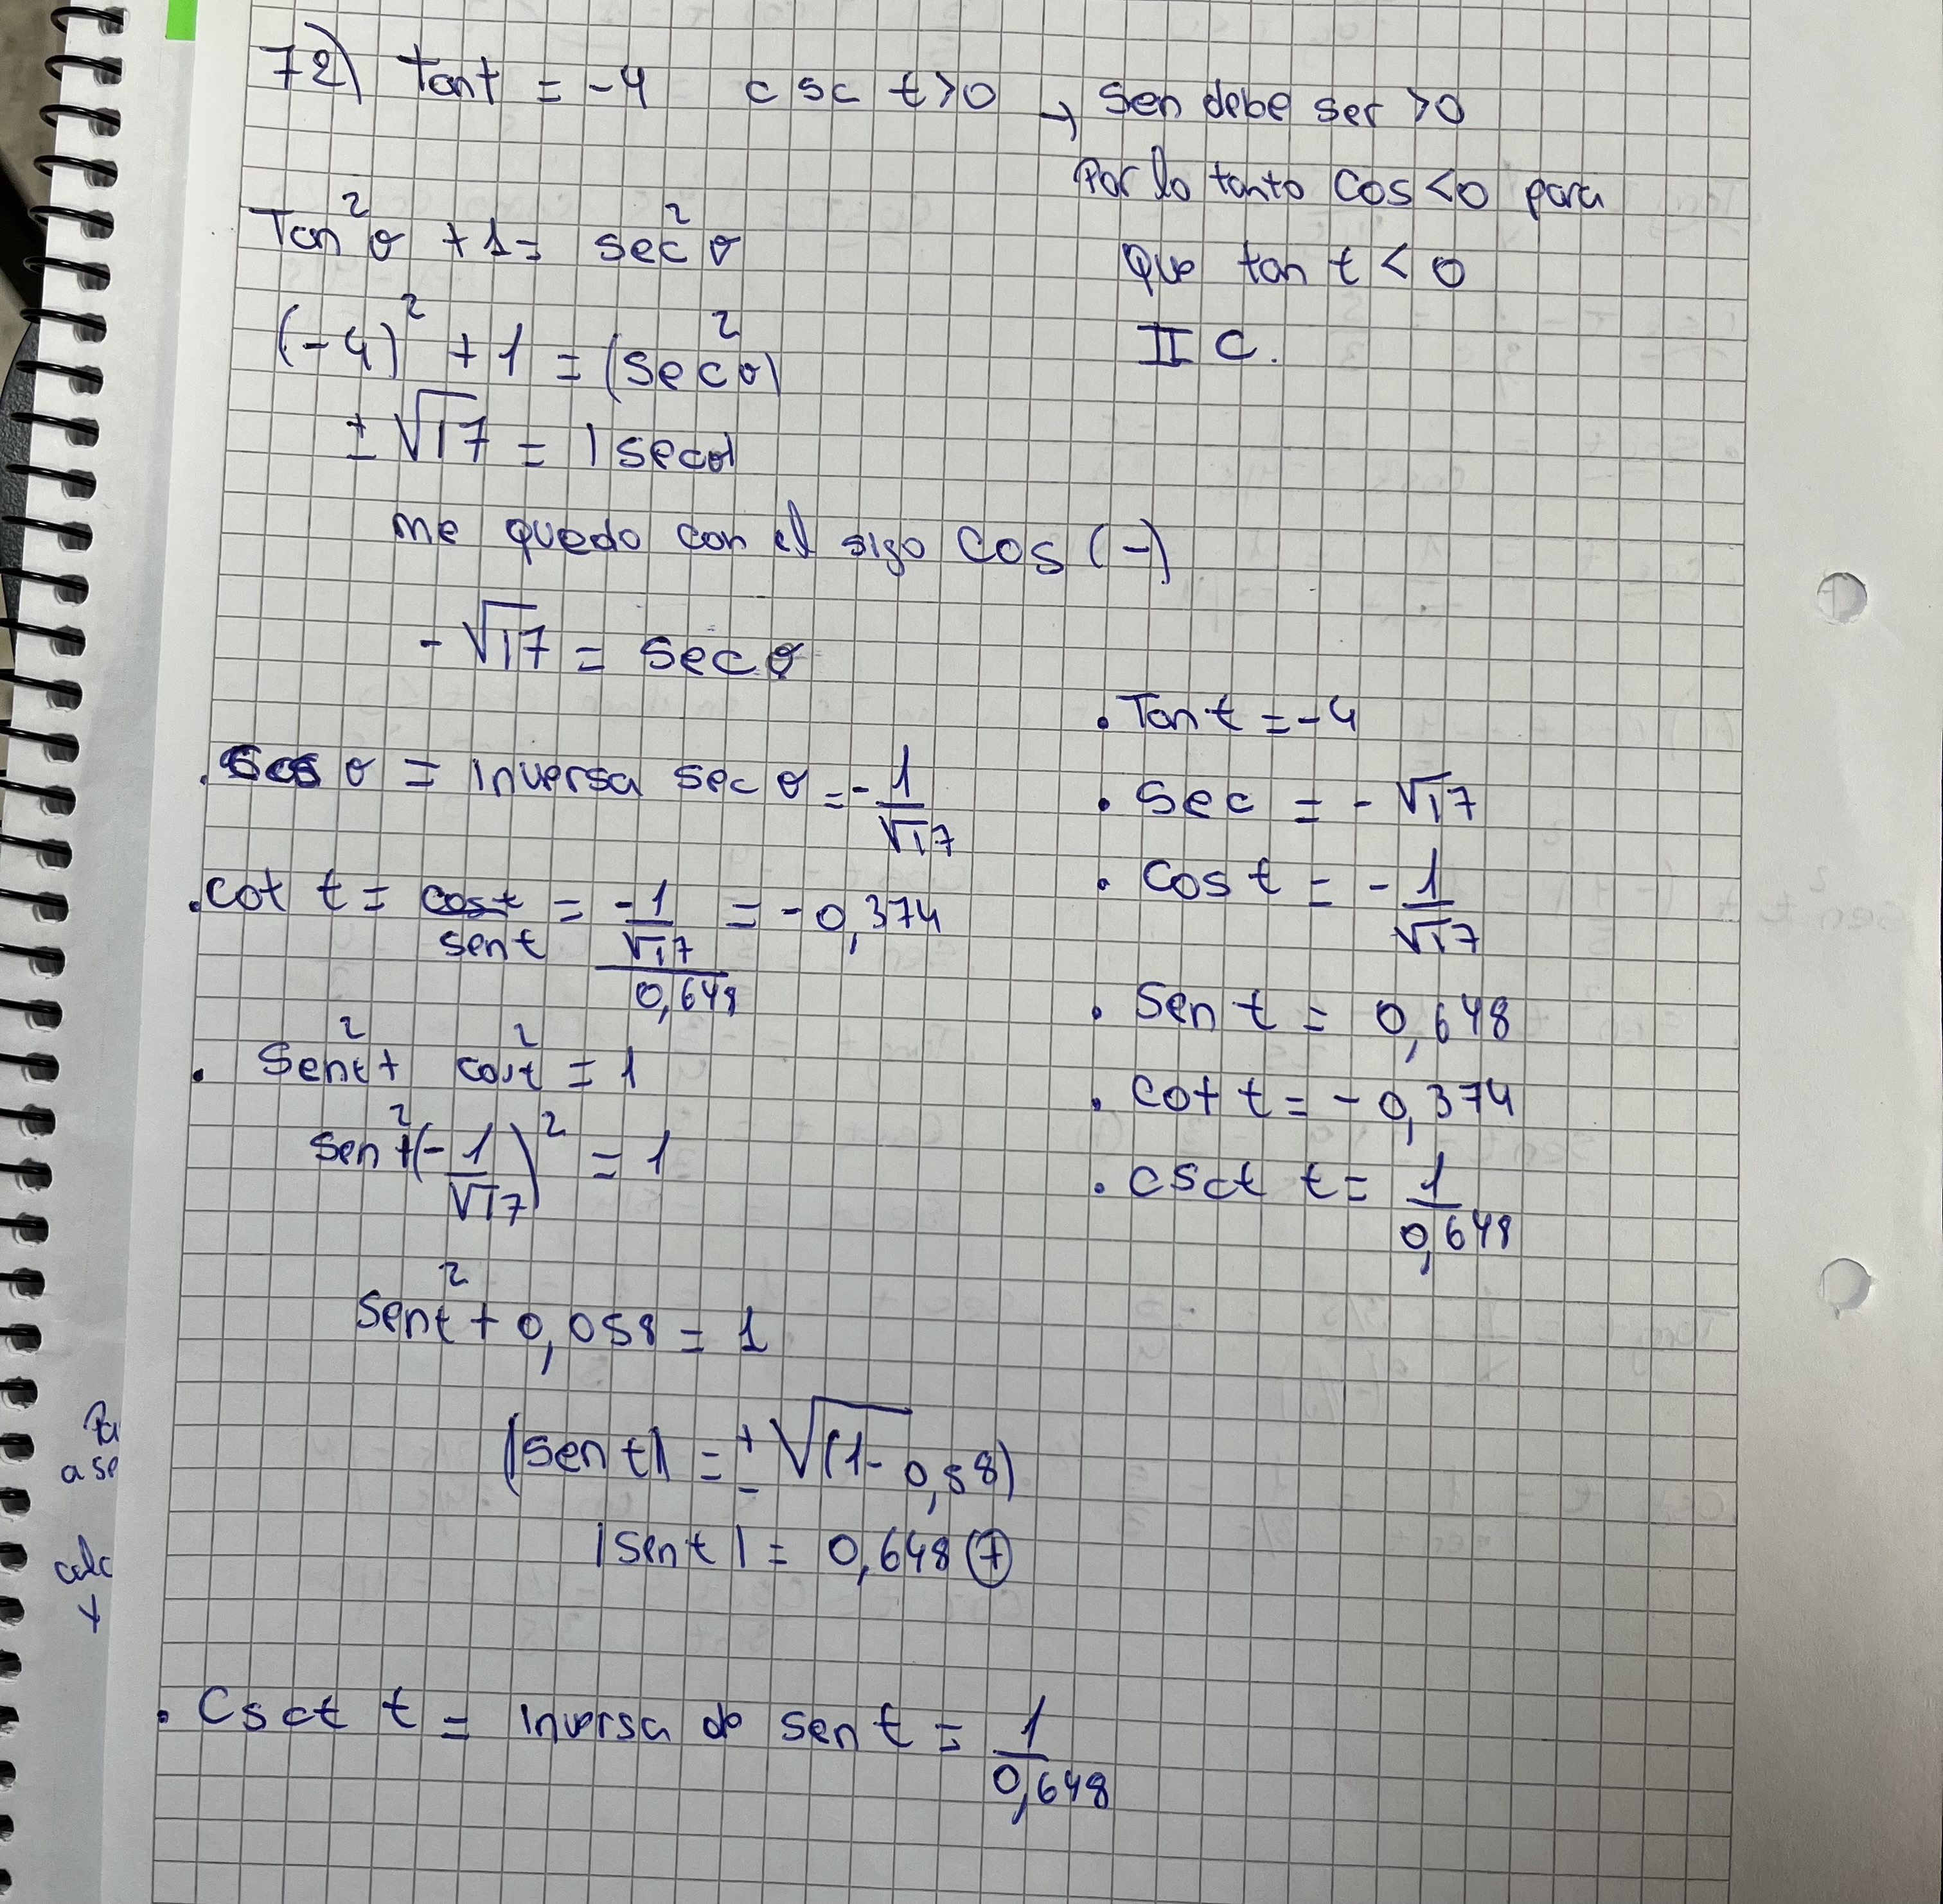 72) Tan t = -4 csc t > 0 → Sen debe ser > 0
Por lo tanto cos < 0 para
Que tan t < 0
II C.
Tan² θ + 1 = sec² θ
(-4)² + 1 = (sec θ)²
± √17 = |sec θ|
me quedo con el sigo cos (-)
- √17 = sec θ
. cos θ = inversa sec θ = - 1/√17
. cot t = cos t / sen t = (-1/√17) / 0,648 = -0,374
. sen² t + cos² t = 1
sen² + (- 1/√17)² = 1
sen² t + 0,058 = 1
|sen t| = ± √(1 - 0,58)
|sen t| = 0,648 (+)
. Csct t = inversa de sen t = 1/0,648
. Tan t = -4
. Sec = - √17
. Cos t = - 1/√17
. Sen t = 0,648
. cot t = - 0,374
. csct t = 1/0,648
a se
calc
y